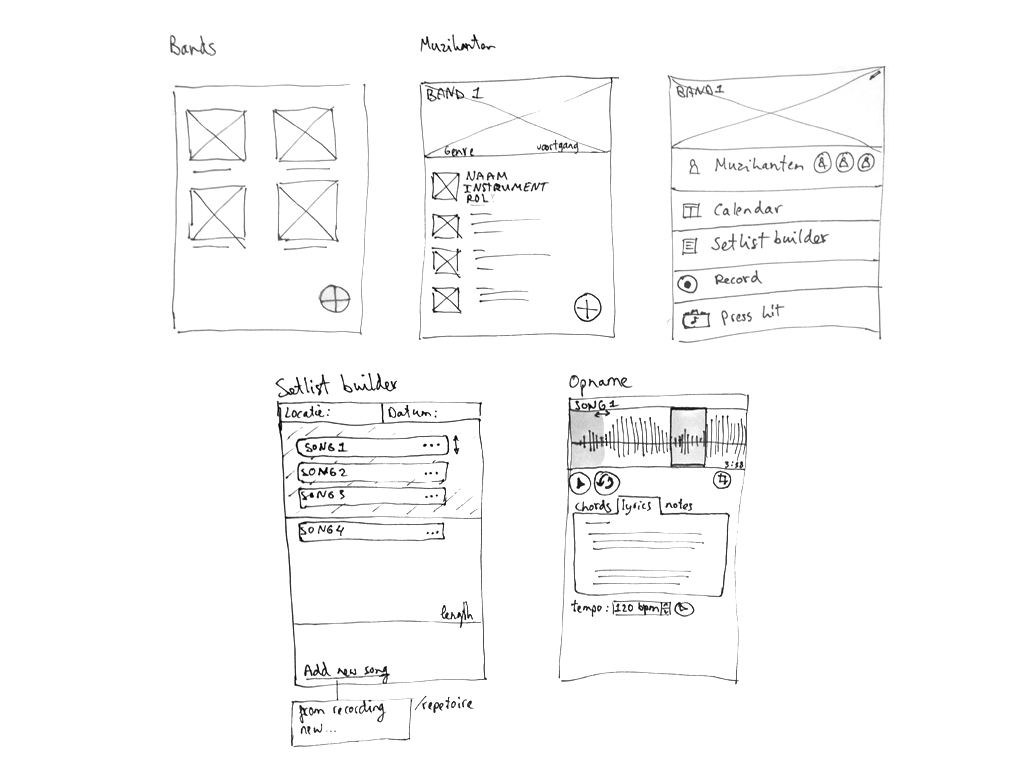 Bands
Muzikanten
BAND 1
Genre
voortgang
NAAM
INSTRUMENT
ROL
BAND 1
Muzikanten
Calendar
Setlist builder
Record
Press kit
Setlist builder
Locatie:
Datum:
SONG 1
SONG 2
SONG 3
SONG 4
length
Add new song
from recording /repetoire
new...
Opname
SONG 1
3:38
chords lyrics notes
tempo: 120 bpm